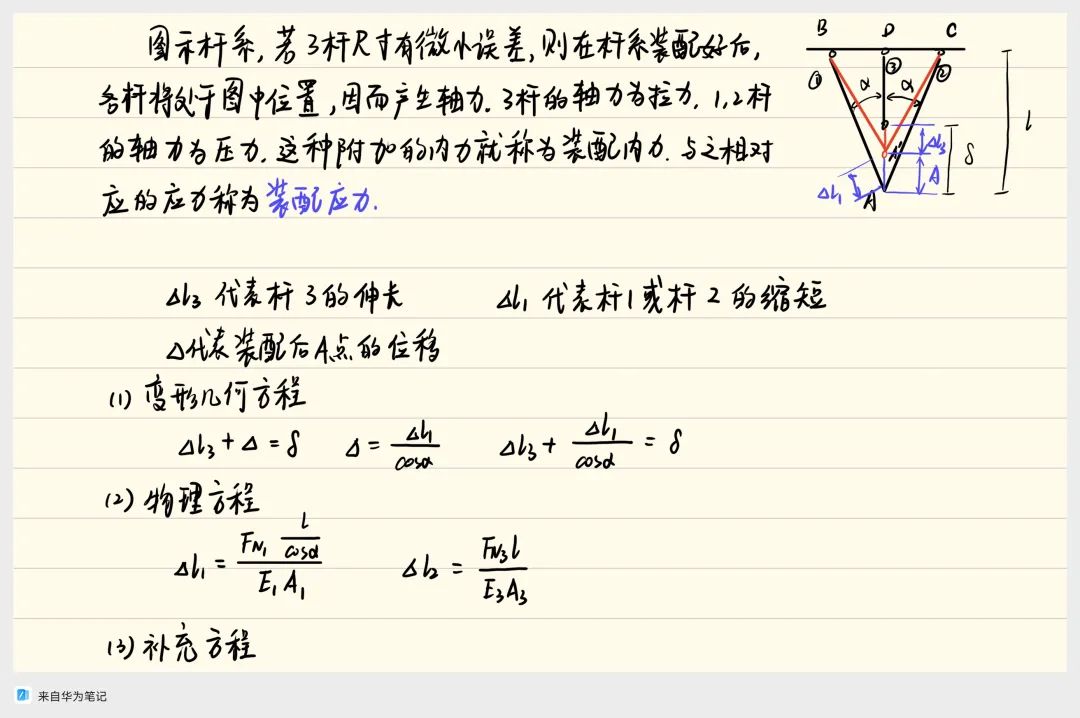 图示杆系,若3杆尺寸有微小误差,则在杆系装配好后,
各杆将处于图中位置,因而产生轴力.3杆的轴力为拉力.1,2杆
的轴力为压力.这种附加的内力就称为装配内力.与之相对
应的应力称为装配应力.
B D C
① ③ ②
α α
l
A' Δl₃ δ
Δl₁ A Δ
Δl₃ 代表杆3的伸长 Δl₁ 代表杆1或杆2的缩短
Δ代表装配后A点的位移
(1) 变形几何方程
Δl₃ + Δ = δ Δ = Δl₁/cosα Δl₃ + Δl₁/cosα = δ
(2) 物理方程
Δl₁ = (F_N₁ l/cosα)/(E₁A₁) Δl₂ = F_N₃l/(E₃A₃)
(3) 补充方程
来自华为笔记